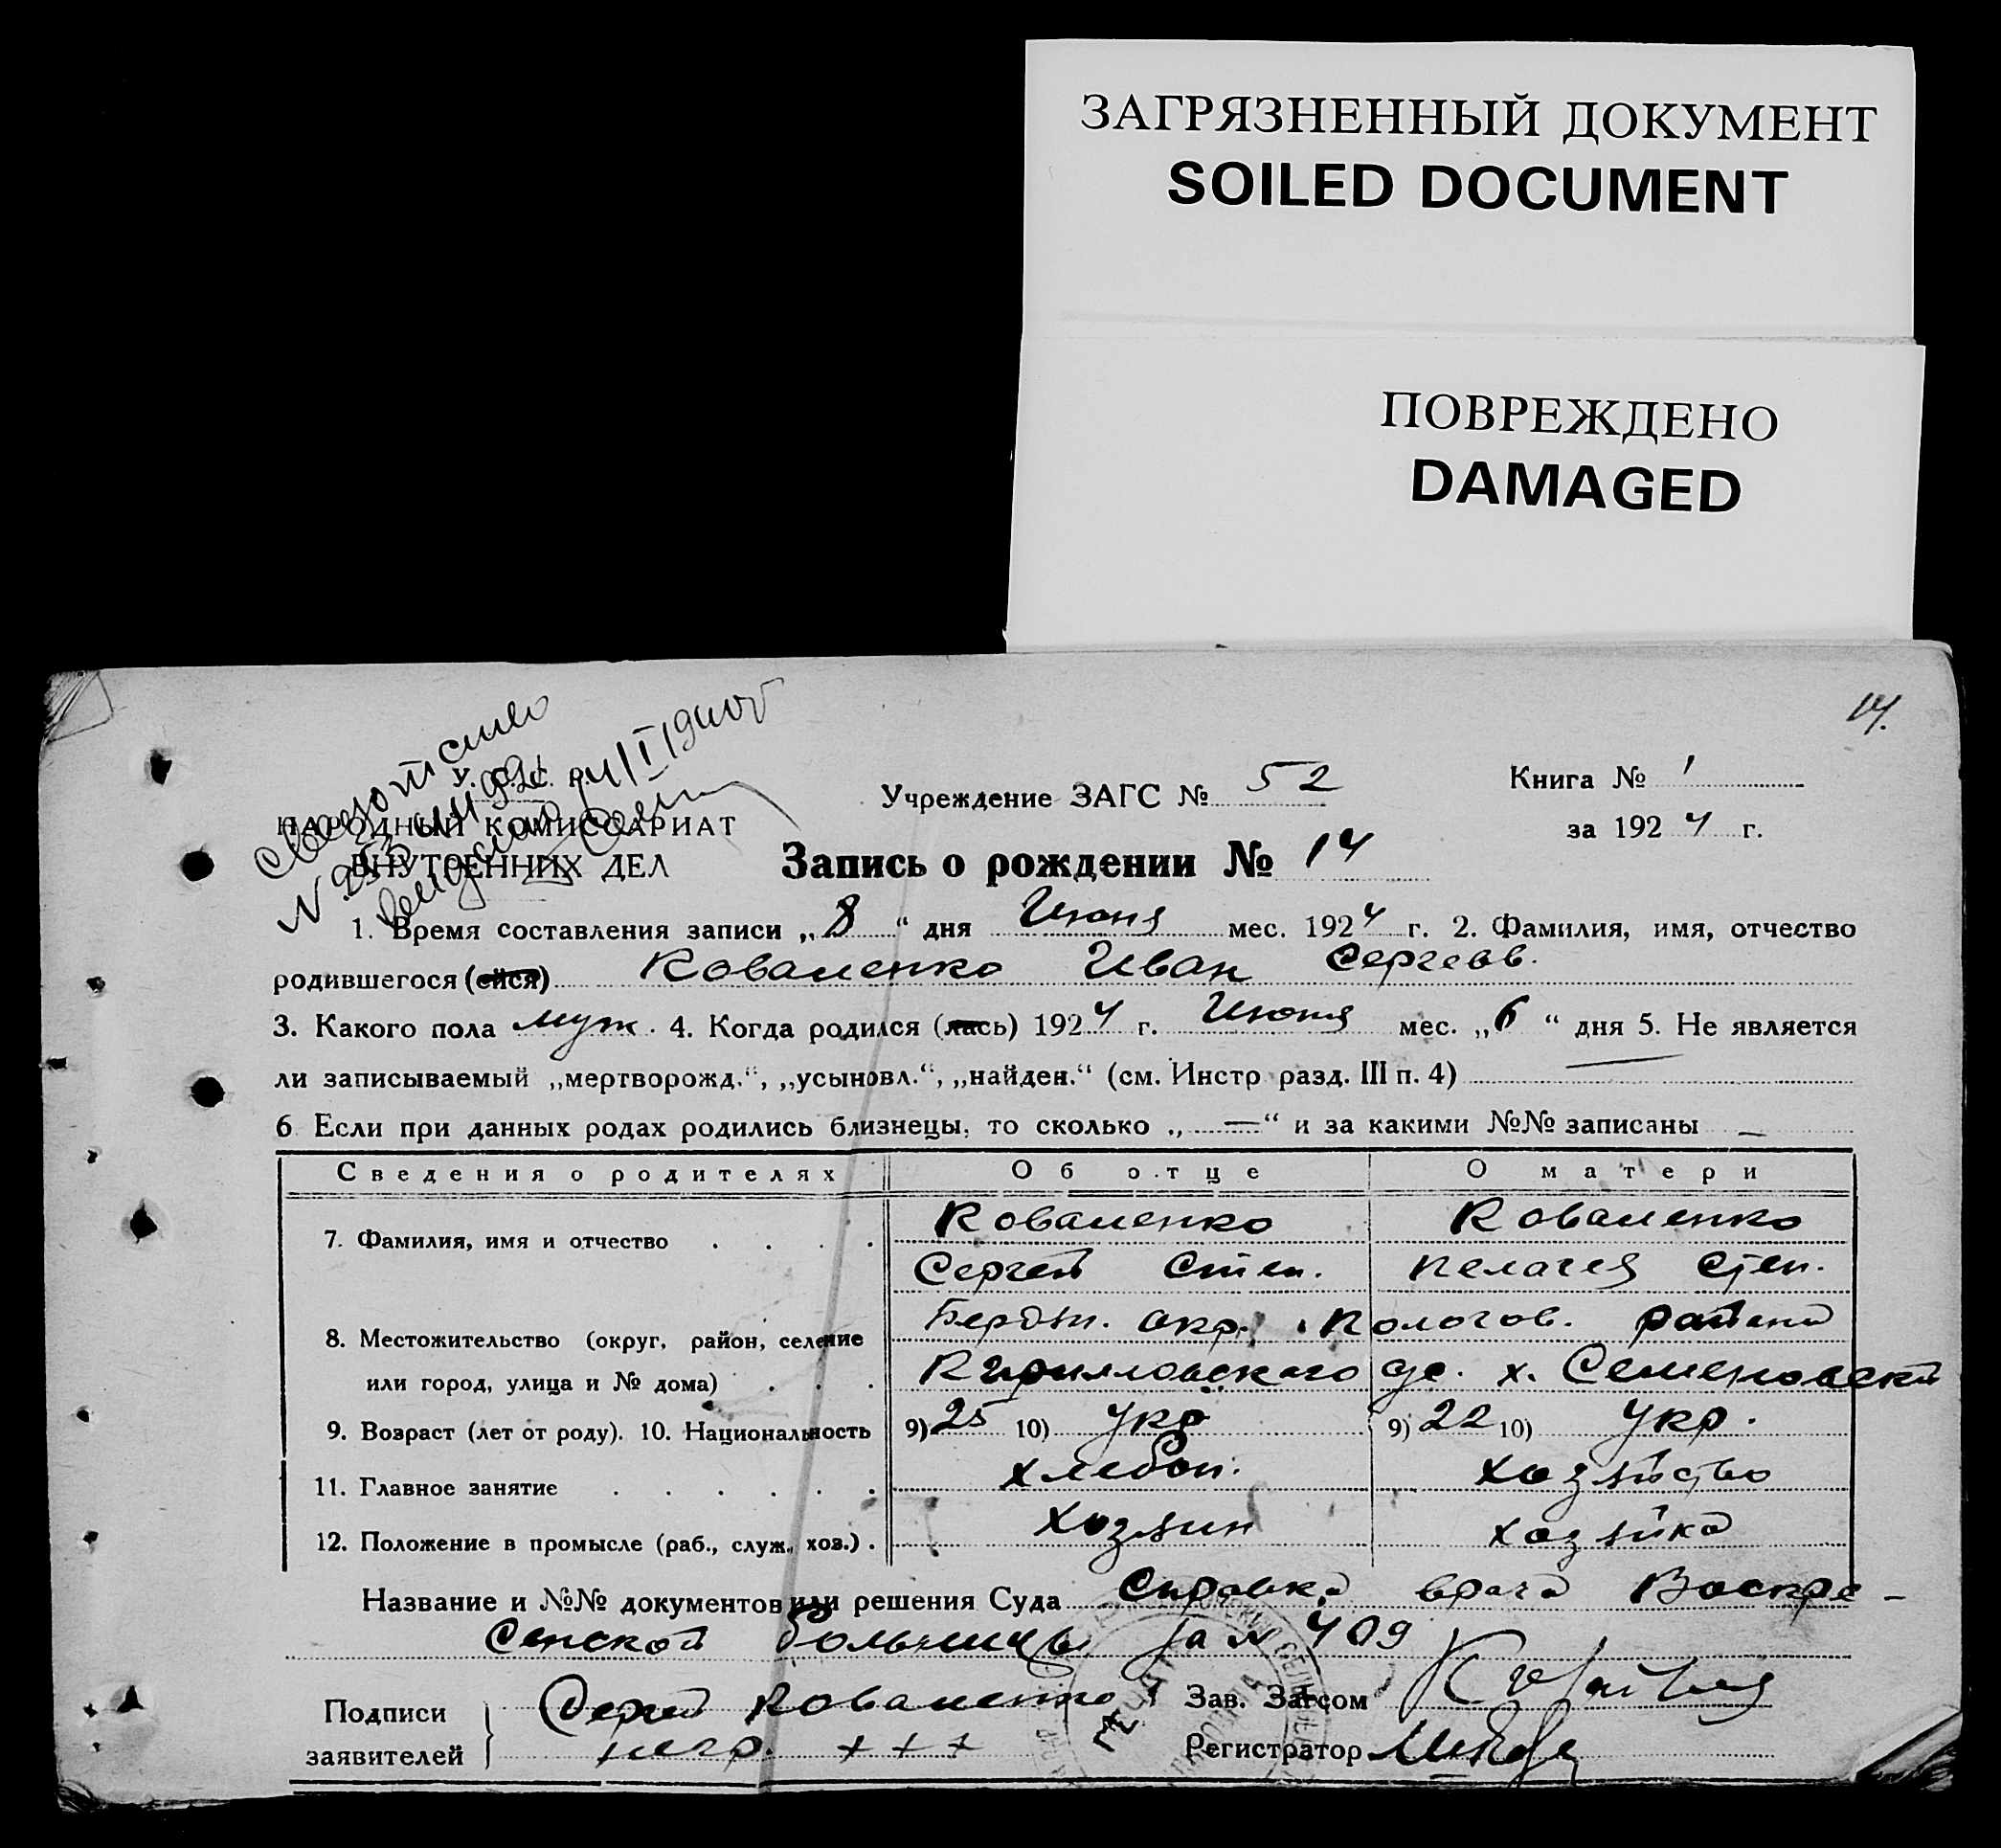 ЗАГРЯЗНЕННЫЙ ДОКУМЕНТ
SOILED DOCUMENT
ПОВРЕЖДЕНО
DAMAGED
14.
У. С. С. Р.
НАРОДНЫЙ КОМИССАРИАТ
ВНУТРЕННИХ ДЕЛ
Учреждение ЗАГС № 52
Книга № 1
за 1924 г.
Запись о рождении № 14
1. Время составления записи „8“ дня Июня мес. 1924 г. 2. Фамилия, имя, отчество
родившегося (ейся) Коваленко Иван Сергеев.
3. Какого пола муж. 4. Когда родился (лась) 1924 г. Июня мес. „6“ дня 5. Не является
ли записываемый „мертворожд.“, „усыновл.“, „найден.“ (см. Инстр разд. III п. 4) —
6 Если при данных родах родились близнецы, то сколько „—“ и за какими №№ записаны —
Сведения о родителях Об отце О матери
7. Фамилия, имя и отчество . . . . Коваленко Коваленко
Сергей Степ. Пелагея Степ.
8. Местожительство (округ, район, селение Бердян. окр. Пологов. района
или город, улица и № дома) . . . Кирилловского с/с. х. Семеновский
9. Возраст (лет от роду). 10. Национальность 9) 25 10) Укр 9) 22 10) Укр.
11. Главное занятие . . . . . . хлебоп. хозяйство
12. Положение в промысле (раб., служ., хоз.) . хозяин хозяйка
Название и №№ документов или решения Суда Справка врача Воскре-
сенской больницы за № 409
Подписи заявителей Сергей Коваленко Зав. Загсом
негр. + + + Регистратор